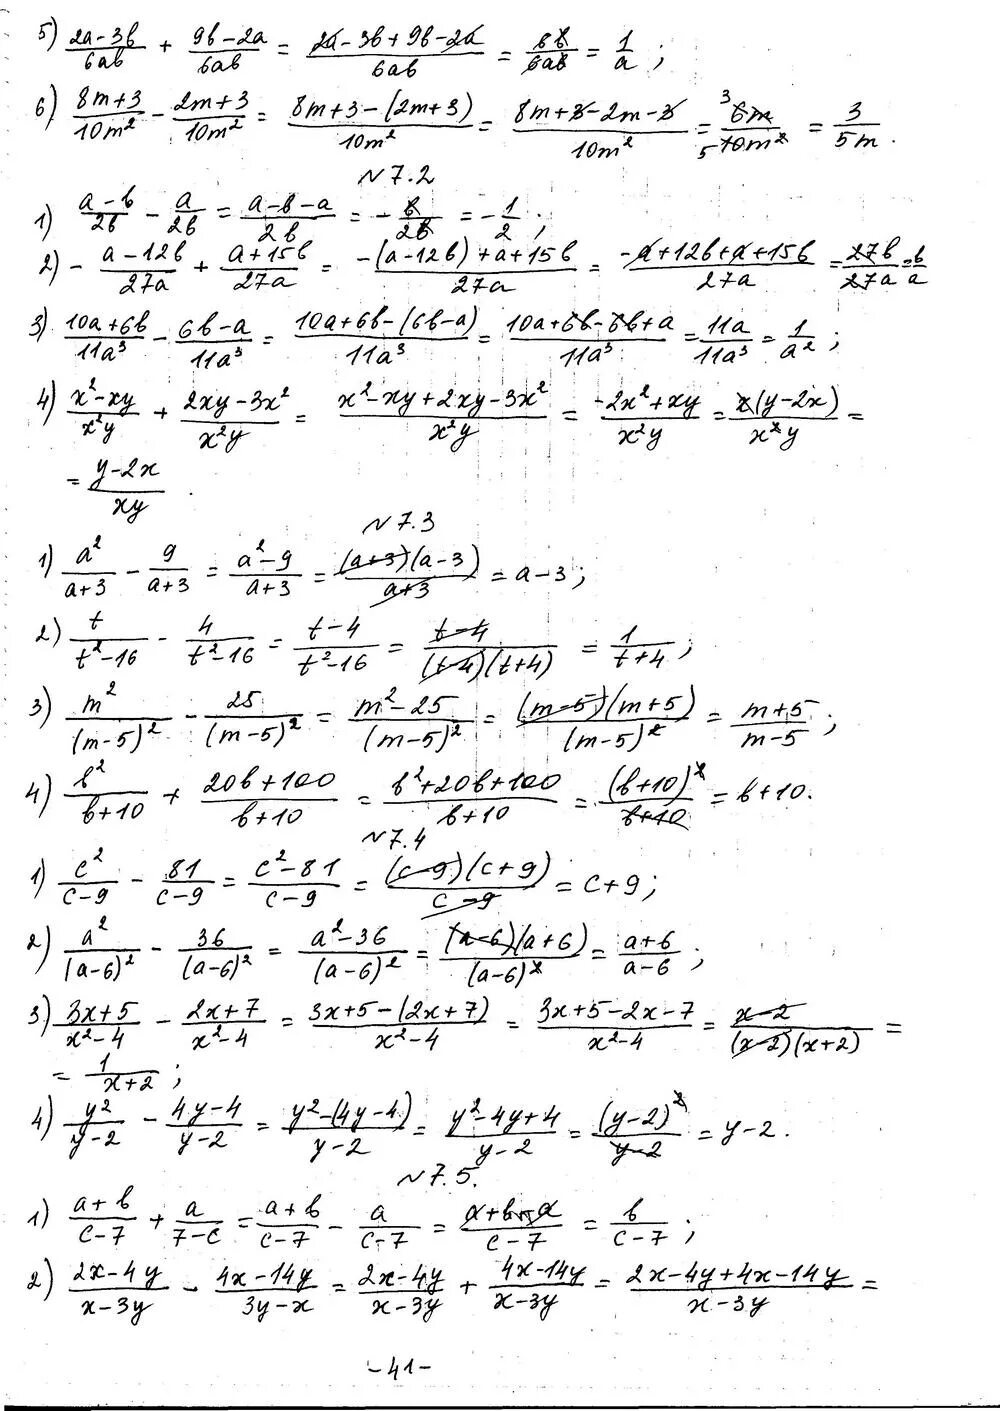 5) (2a-3b)/(6ab) + (9b-2a)/(6ab) = (2a-3b+9b-2a)/(6ab) = (6b)/(6ab) = 1/a ;
6) (8m+3)/(10m²) - (2m+3)/(10m²) = (8m+3-(2m+3))/(10m²) = (8m+3-2m-3)/(10m²) = (³6m)/(₅10m²) = 3/(5m) .
№7.2
1) (a-b)/(2b) - a/(2b) = (a-b-a)/(2b) = -b/(2b) = -1/2 ;
2) -(a-12b)/(27a) + (a+15b)/(27a) = (-(a-12b)+a+15b)/(27a) = (-a+12b+a+15b)/(27a) = (27b)/(27a) = b/a
3) (10a+6b)/(11a³) - (6b-a)/(11a³) = (10a+6b-(6b-a))/(11a³) = (10a+6b-6b+a)/(11a³) = (11a)/(11a³) = 1/a² ;
4) (x²-xy)/(x²y) + (2xy-3x²)/(x²y) = (x²-xy+2xy-3x²)/(x²y) = (-2x²+xy)/(x²y) = (x(y-2x))/(x²y) =
= (y-2x)/(xy) .
№7.3
1) a²/(a+3) - 9/(a+3) = (a²-9)/(a+3) = ((a+3)(a-3))/(a+3) = a-3 ;
2) t/(t²-16) - 4/(t²-16) = (t-4)/(t²-16) = (t-4)/((t-4)(t+4)) = 1/(t+4) ;
3) m²/(m-5)² - 25/(m-5)² = (m²-25)/(m-5)² = ((m-5)(m+5))/(m-5)² = (m+5)/(m-5) ;
4) b²/(b+10) + (20b+100)/(b+10) = (b²+20b+100)/(b+10) = (b+10)²/(b+10) = b+10.
№7.4
1) c²/(c-9) - 81/(c-9) = (c²-81)/(c-9) = ((c-9)(c+9))/(c-9) = c+9 ;
2) a²/(a-6)² - 36/(a-6)² = (a²-36)/(a-6)² = ((a-6)(a+6))/(a-6)² = (a+6)/(a-6) ;
3) (3x+5)/(x²-4) - (2x+7)/(x²-4) = (3x+5-(2x+7))/(x²-4) = (3x+5-2x-7)/(x²-4) = (x-2)/((x-2)(x+2)) =
= 1/(x+2) ;
4) y²/(y-2) - (4y-4)/(y-2) = (y²-(4y-4))/(y-2) = (y²-4y+4)/(y-2) = (y-2)²/(y-2) = y-2.
№7.5.
1) (a+b)/(c-7) + a/(7-c) = (a+b)/(c-7) - a/(c-7) = (a+b-a)/(c-7) = b/(c-7) ;
2) (2x-4y)/(x-3y) - (4x-14y)/(3y-x) = (2x-4y)/(x-3y) + (4x-14y)/(x-3y) = (2x-4y+4x-14y)/(x-3y) =
-41-